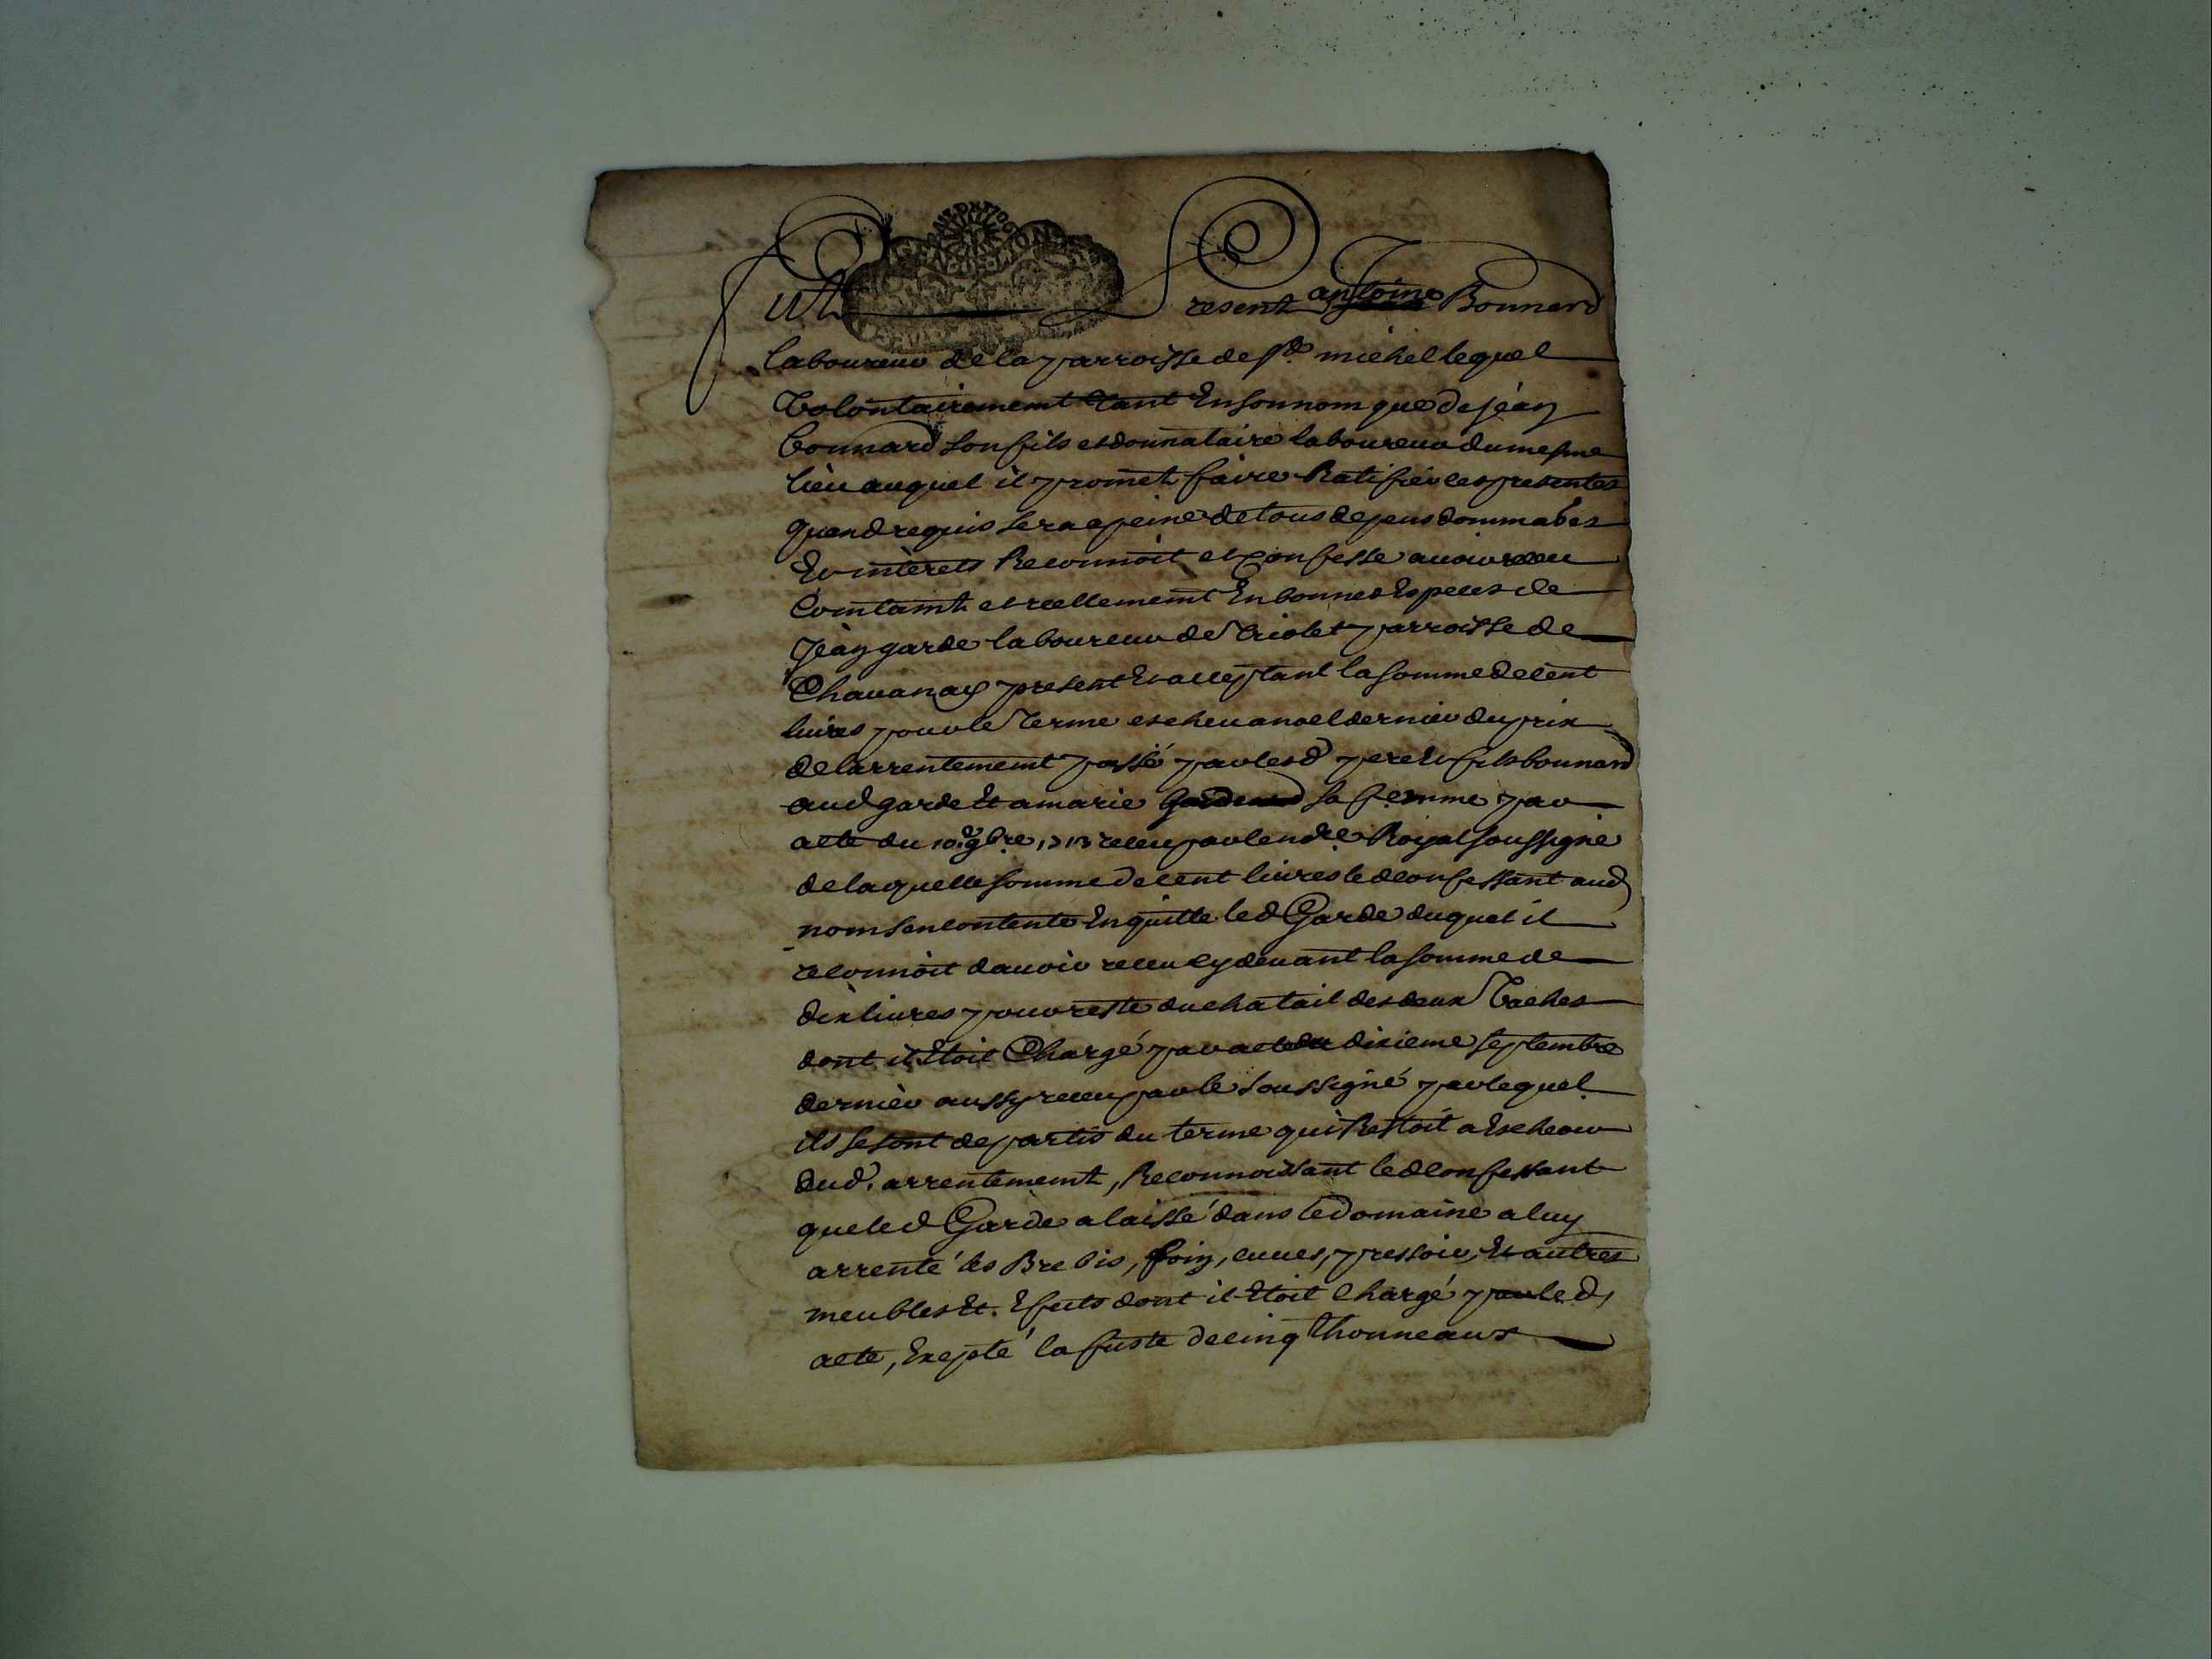 resent antoine Bonnard
laboureur de la parroisse de st michel lequel
volontairement tant En son nom que de jean
bonnard son fils et donnataire laboureur du mesme
lieu auquel il promet faire Ratifier les presentes
quand requis sera a peine de tous depens dommages
Et interets Reconnoit et confesse avoir receu
Comtamt et reellememt En bonnes Especes de
Jean garde laboureur de Triolet parroisse de
Chavanay present Et acceptant la somme de cent
livres pour le Terme escheu a noel dernier du prix
de larrentememt passé par lesd pere Et fils bonnard
aud garde Et a marie sa femme par
acte du 10e 9bre 1713 receu par le nore Royal soussigné
de laquelle somme de cent livres led confessant aud
nom sen contente En quitte led Garde duquel il
reconnoit davoir receu cy devant la somme de
dix livres pour reste du chatail des deux Vaches
dont il Etoit Chargé par acte du dixieme septembre
dernier aussy receu par le soussigné par lequel
ils se sont departis du terme qui Restoit a Escheoir
dud. arrentememt, Reconnoissant led confessant
que led Garde a laissé dans le domaine a luy
arrenté les Brebis, foin, cuves, pressoir, Et autres
meubles Et. Efects dont il Etoit Chargé par led,
acte, Exepté la fuste de cinq thonneaux